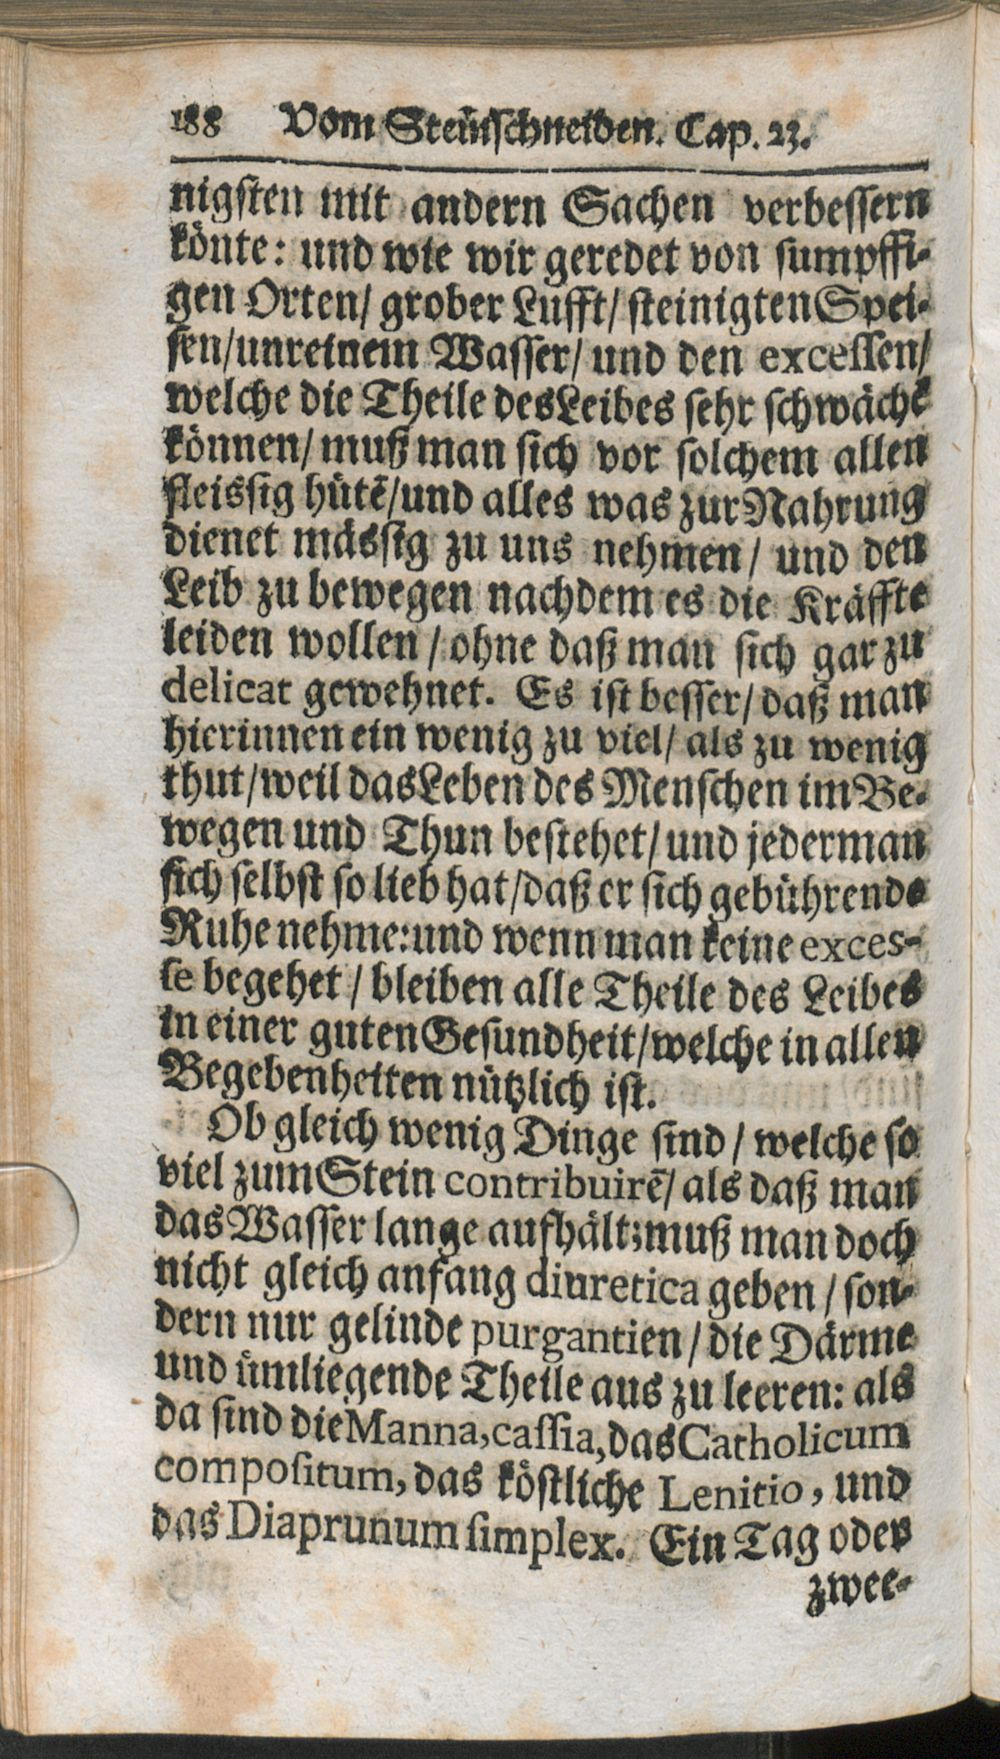 188 Vom Steinschneiden. Cap. 23.
nigsten mit andern Sachen verbessern
könte: und wie wir geredet von sumpffi-
gen Orten/ grober Lufft/ steinigten Spei-
sen/unreinem Wasser/ und den excessen/
welche die Theile des Leibes sehr schwächē
können/ muß man sich vor solchem allen
fleissig hütē/und alles was zur Nahrung
dienet mässig zu uns nehmen/ und den
Leib zu bewegen nachdem es die Kräffte
leiden wollen/ ohne daß man sich gar zu
delicat gewehnet. Es ist besser/ daß man
hierinnen ein wenig zu viel/ als zu wenig
thut/weil das Leben des Menschen im Be-
wegen und Thun bestehet/ und jederman
sich selbst so lieb hat/daß er sich gebührende
Ruhe nehme: und wenn man keine exces-
se begehet/ bleiben alle Theile des Leibes
in einer guten Gesundheit/welche in allen
Begebenheiten nützlich ist.
Ob gleich wenig Dinge sind/ welche so
viel zum Stein contribuirē/ als daß man
das Wasser lange aufhält; muß man doch
nicht gleich anfang diuretica geben/ son-
dern nur gelinde purgantien/ die Därme
und ümliegende Theile aus zu leeren: als
da sind die Manna, cassia, das Catholicum
compositum, das köstliche Lenitio, und
das Diaprunum simplex. Ein Tag oder
zwee-